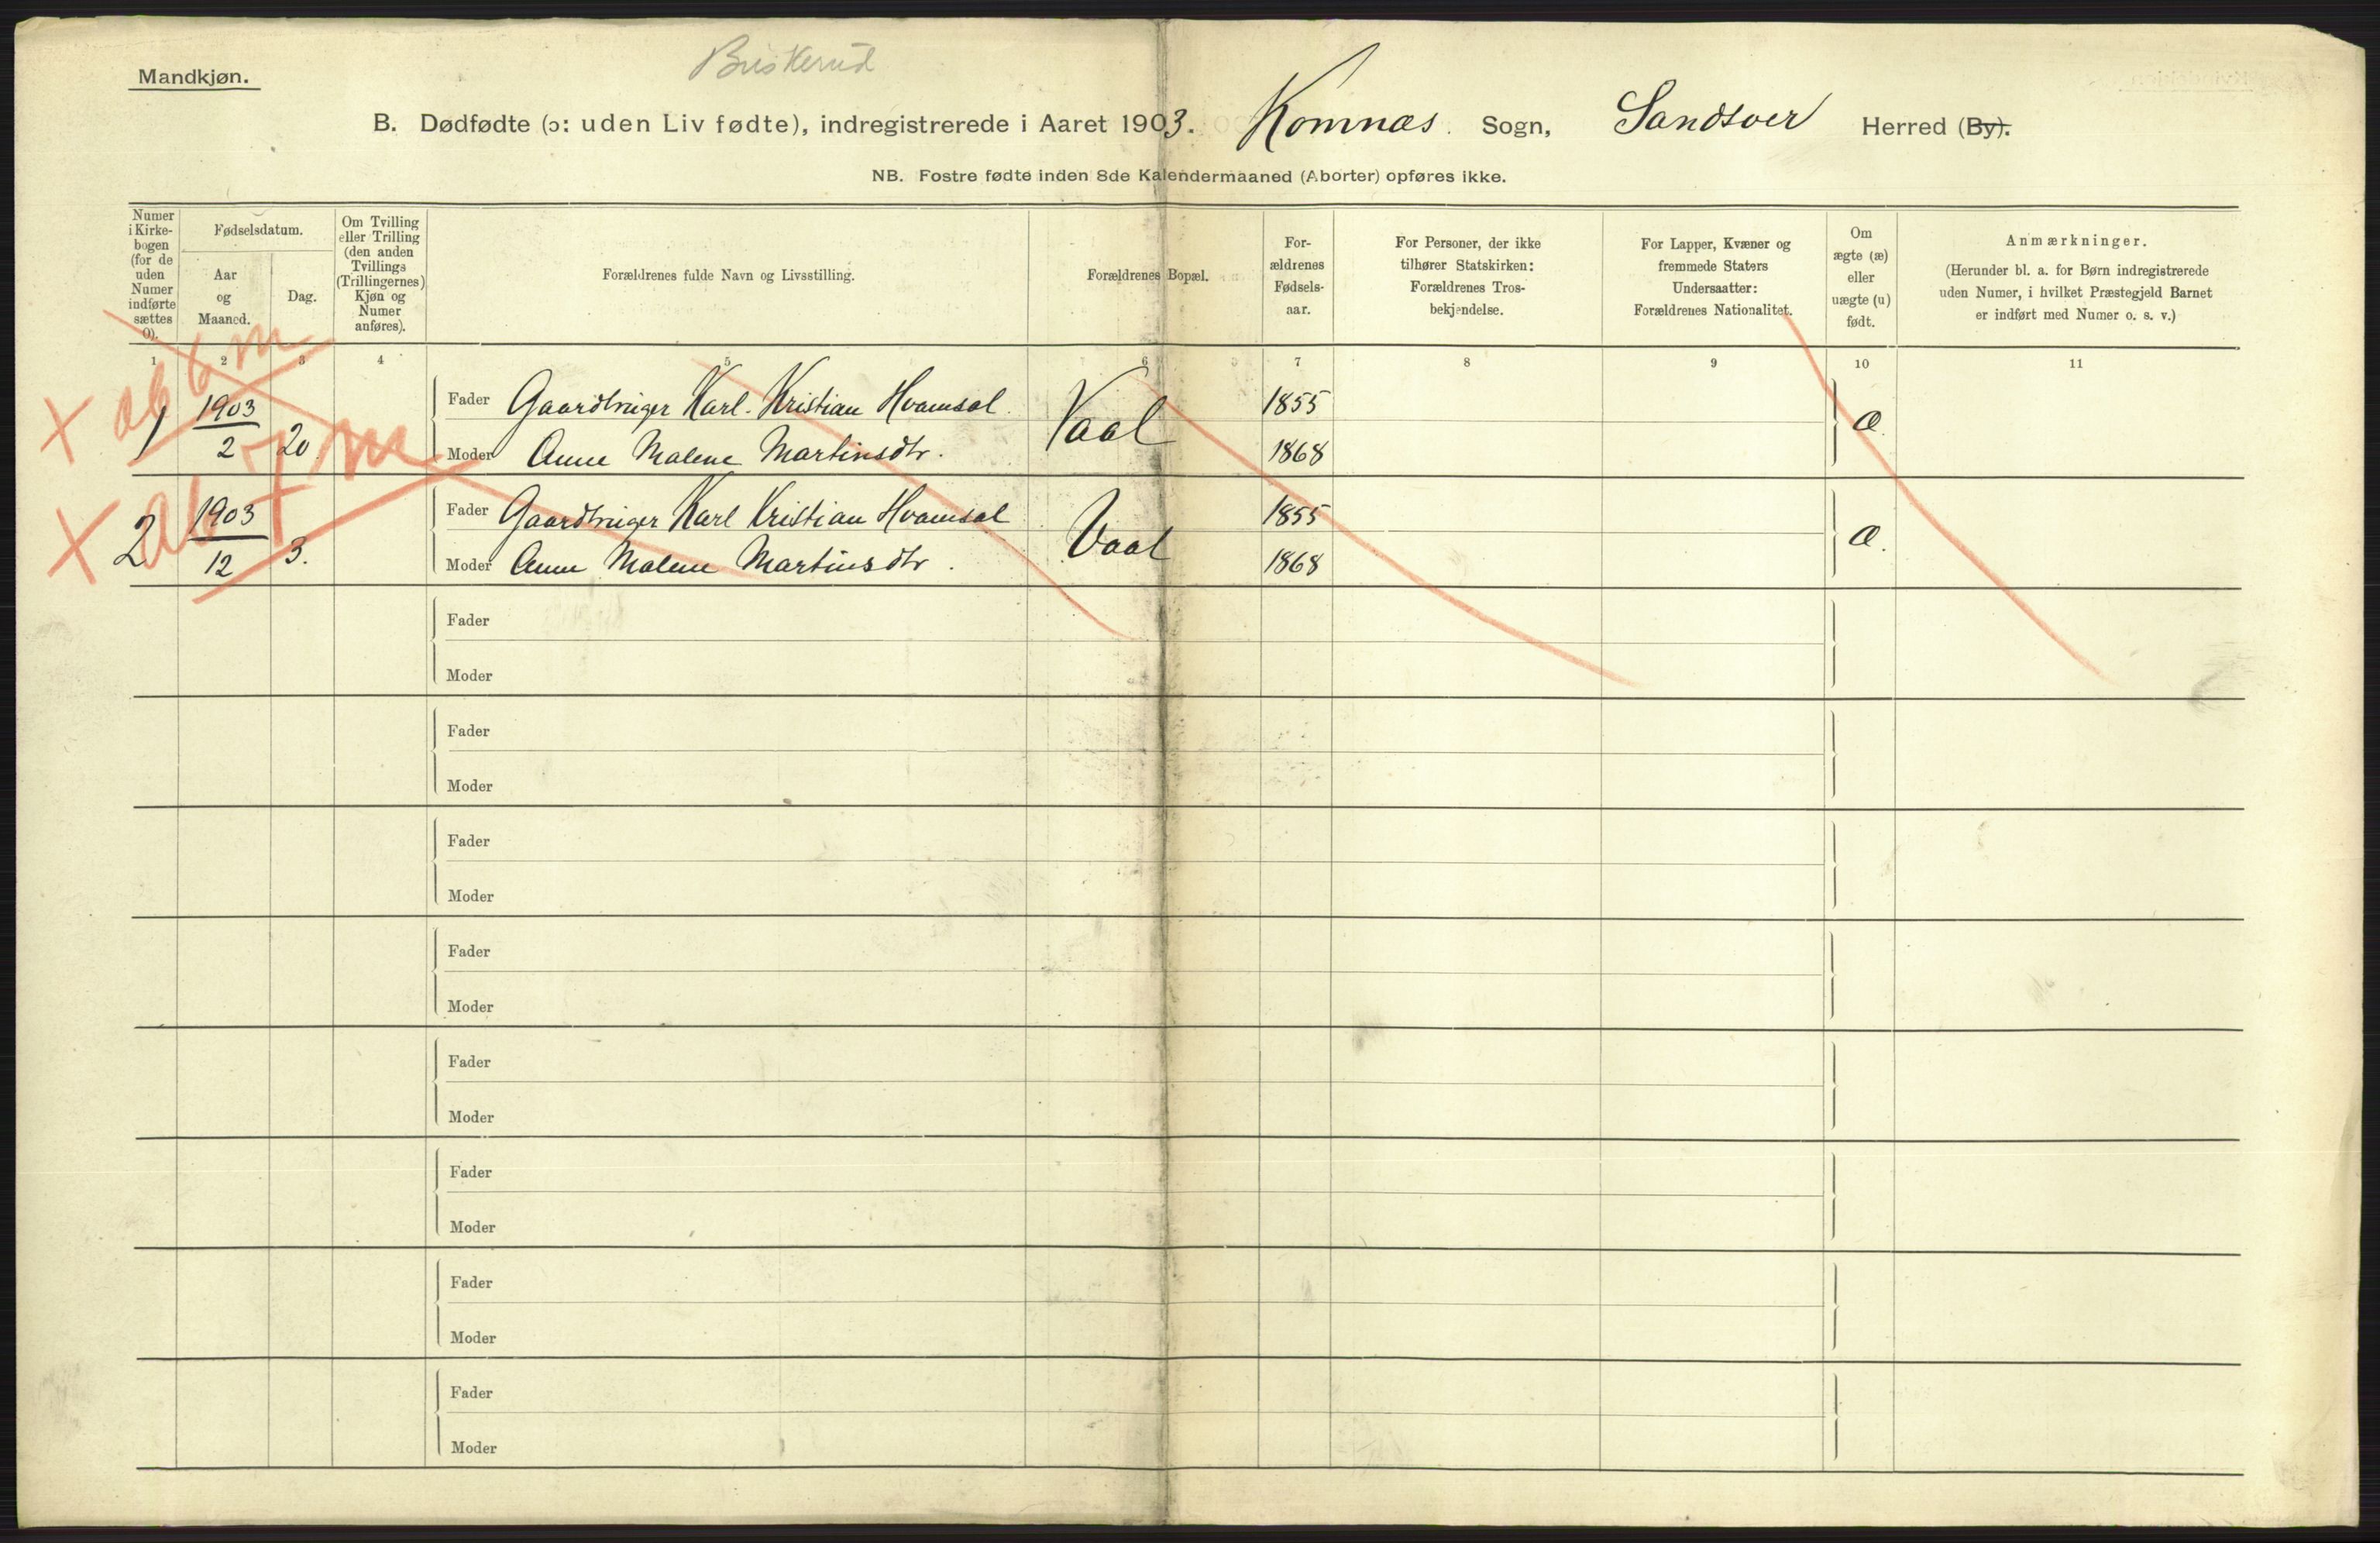 Buskerud
Mandkjøn.
B. Dødfødte (ɔ: uden Liv fødte), indregistrerede i Aaret 1903. Komnæs. Sogn, Sandsver Herred (By).
NB. Fostre fødte inden 8de Kalendermaaned (Aborter) opføres ikke.
Numer i Kirke-bogen (for de uden Numer indførte sættes 0).
Fødselsdatum.
Aar og Maaned.
Dag.
Om Tvilling eller Trilling (den anden Tvillings (Trillingernes) Kjøn og Numer anføres).
Forældrenes fulde Navn og Livsstilling.
Forældrenes Bopæl.
For-ældrenes Fødsels-aar.
For Personer, der ikke tilhører Statskirken: Forældrenes Tros-bekjendelse.
For Lapper, Kvæner og fremmede Staters Undersaatter: Forældrenes Nationalitet.
Om ægte (æ) eller uægte (u) født.
Anmærkninger.
(Herunder bl. a. for Børn indregistrerede uden Numer, i hvilket Præstegjeld Barnet er indført med Numer o. s. v.)
1 2 3 4 5 6 7 8 9 10 11
+ ab 6 m
1 1903/2 20. Fader Gaardbruger Karl Kristian Hvamsal. Vaal 1855 æ.
Moder Anne Malene Martinsdtr. 1868
+ ab 7 m
2 1903/12 3. Fader Gaardbruger Karl Kristian Hvamsal Vaal 1855 æ.
Moder Anne Malene Martinsdtr. 1868
Fader
Moder
Fader
Moder
Fader
Moder
Fader
Moder
Fader
Moder
Fader
Moder
Fader
Moder
Fader
Moder